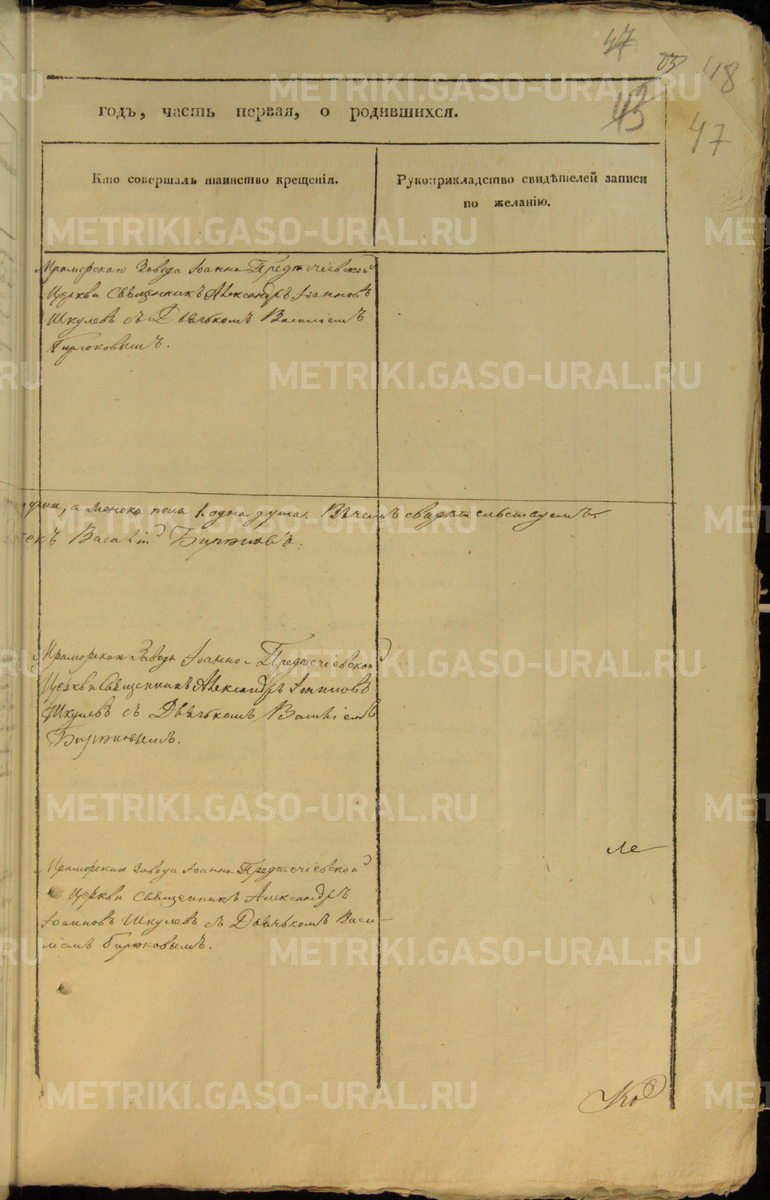 47
43
118
47
годъ, часть первая, о родившихся.
Кто совершалъ таинство крещенія.
Рукоприкладство свидѣтелей записи
по желанію.
Мраморскаго Завода Іоанно-Предтечіевской
Церкви Священникъ Александръ Іоанновъ
Шкулевъ съ Дьячькомъ Василіемъ
Бирюковымъ.
а женска пола 1. одна душа. Въ чемъ свидѣтельствуемъ.
Василій Бирюковъ.
Мраморскаго Завода Іоанно-Предтечіевской
Церкви Священникъ Александръ Іоанновъ
Шкулевъ съ Дьячькомъ Василіемъ
Бирюковымъ.
Мраморскаго Завода Іоанно-Предтечіевской
Церкви Священникъ Александръ
Іоанновъ Шкулевъ съ Дьячькомъ Васи-
ліемъ Бирюковымъ.
METRIKI.GASO-URAL.RU